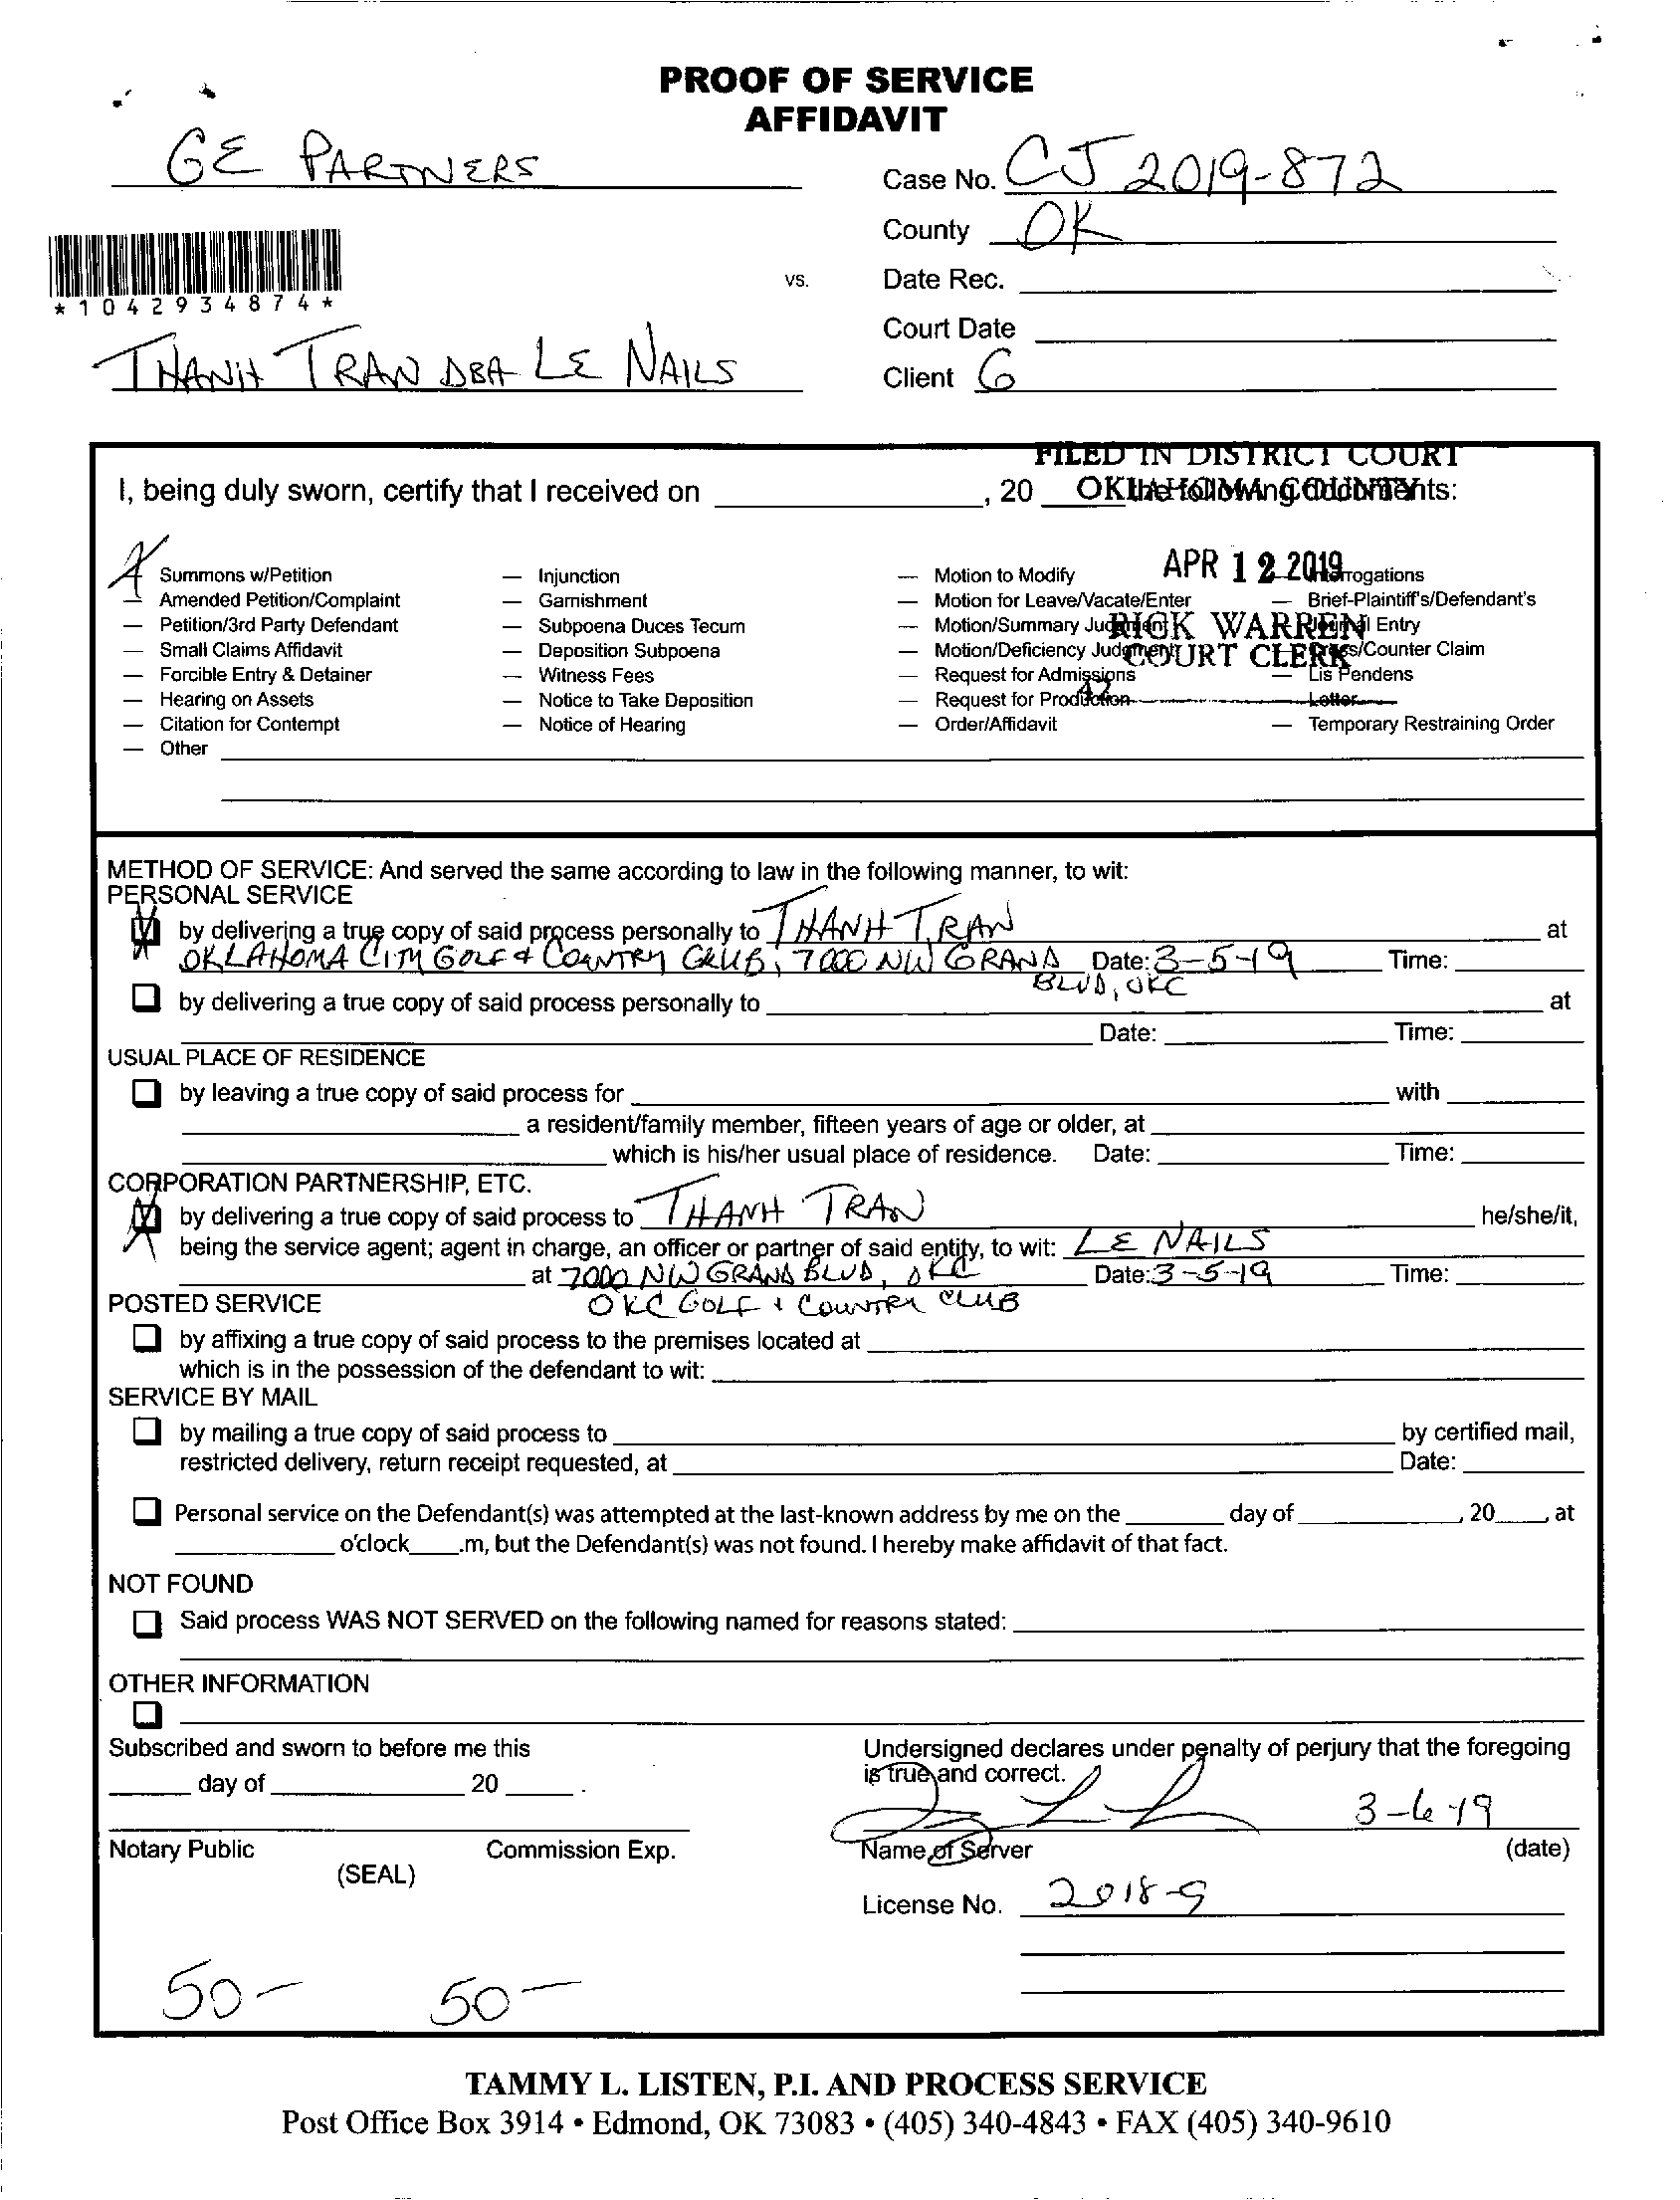 PROOF OF SERVICE
AFFIDAVIT
GE PARTNERS
Case No. CJ 2019-872
County OK
*1042934874*
vs.
Date Rec.
Court Date
THANH TRAN DBA LE NAILS
Client G
FILED IN DISTRICT COURT
OKLAHOMA COUNTY
I, being duly sworn, certify that I received on , 20 the following documents:
APR 12 2019
RICK WARREN
COURT CLERK
42
X Summons w/Petition
— Amended Petition/Complaint
— Petition/3rd Party Defendant
— Small Claims Affidavit
— Forcible Entry & Detainer
— Hearing on Assets
— Citation for Contempt
— Other
— Injunction
— Garnishment
— Subpoena Duces Tecum
— Deposition Subpoena
— Witness Fees
— Notice to Take Deposition
— Notice of Hearing
— Motion to Modify
— Motion for Leave/Vacate/Enter
— Motion/Summary Judgment
— Motion/Deficiency Judgment
— Request for Admissions
— Request for Production
— Order/Affidavit
Interrogations
— Brief-Plaintiff's/Defendant's
Journal Entry
Cross/Counter Claim
— Lis Pendens
Letter
— Temporary Restraining Order
METHOD OF SERVICE: And served the same according to law in the following manner, to wit:
PERSONAL SERVICE
by delivering a true copy of said process personally to THANH TRAN at
OKLAHOMA CITY GOLF & COUNTRY CLUB, 7000 NW GRAND Date: 3-5-19 Time:
BLVD, OKC
by delivering a true copy of said process personally to at
Date: Time:
USUAL PLACE OF RESIDENCE
by leaving a true copy of said process for with
a resident/family member, fifteen years of age or older, at
which is his/her usual place of residence. Date: Time:
CORPORATION PARTNERSHIP, ETC.
by delivering a true copy of said process to THANH TRAN he/she/it,
being the service agent; agent in charge, an officer or partner of said entity, to wit: LE NAILS
at 7000 NW GRAND BLVD, OKC Date: 3-5-19 Time:
POSTED SERVICE OKC GOLF & COUNTRY CLUB
by affixing a true copy of said process to the premises located at
which is in the possession of the defendant to wit:
SERVICE BY MAIL
by mailing a true copy of said process to by certified mail,
restricted delivery, return receipt requested, at Date:
Personal service on the Defendant(s) was attempted at the last-known address by me on the day of , 20 , at
o'clock .m, but the Defendant(s) was not found. I hereby make affidavit of that fact.
NOT FOUND
Said process WAS NOT SERVED on the following named for reasons stated:
OTHER INFORMATION
Subscribed and sworn to before me this
day of 20 .
Notary Public Commission Exp.
(SEAL)
Undersigned declares under penalty of perjury that the foregoing
is true and correct.
3-6-19
Name of Server (date)
License No. 2018-9
50- 50-
TAMMY L. LISTEN, P.I. AND PROCESS SERVICE
Post Office Box 3914 • Edmond, OK 73083 • (405) 340-4843 • FAX (405) 340-9610